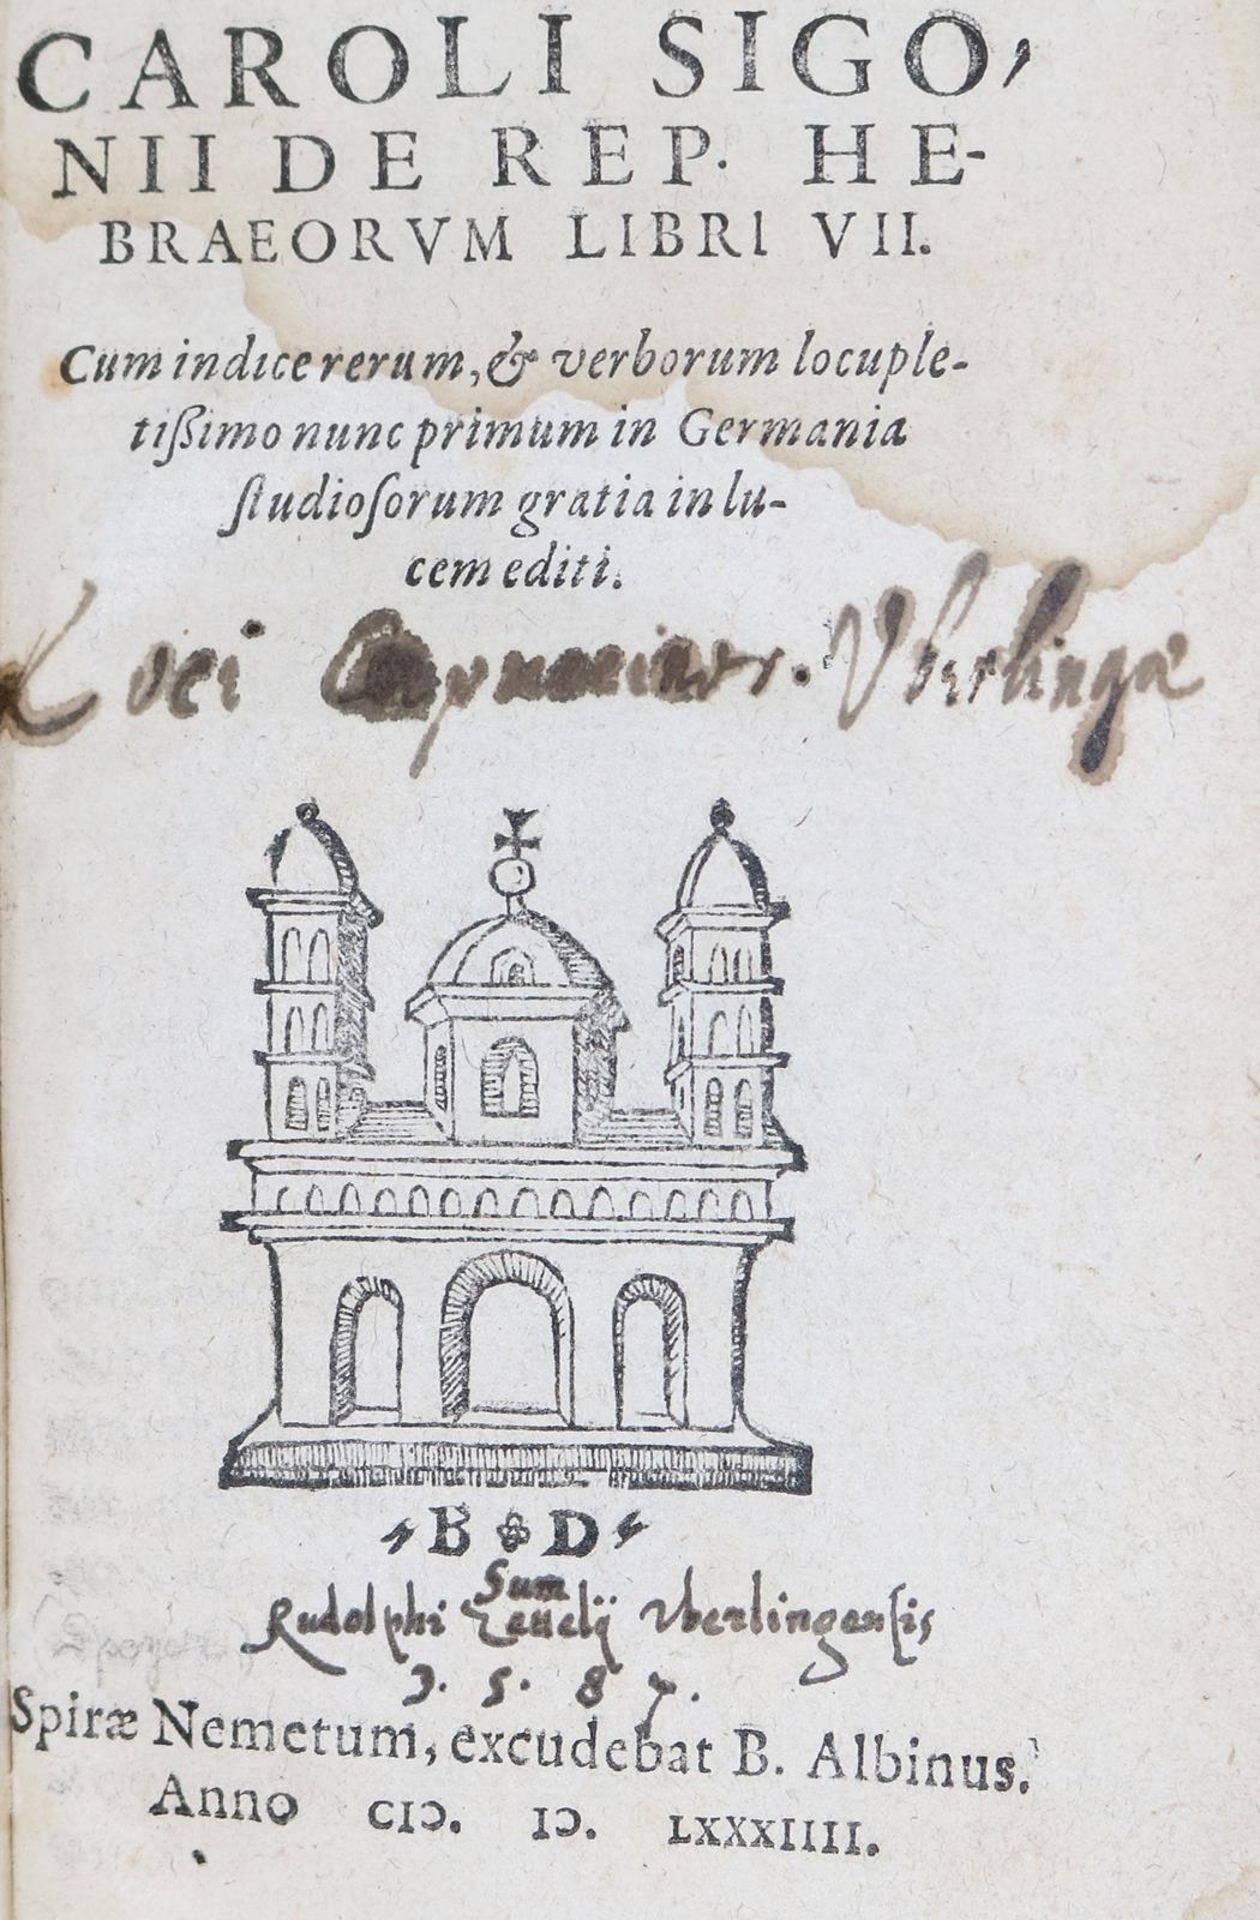 CAROLI SIGO,
NII DE REP. HE-
BRAEORVM LIBRI VII.
Cum indice rerum, & verborum locuple-
tißimo nunc primum in Germania
ſtudioſorum gratia in lu-
cem editi.
Loci Capucinor. Vberlingæ
B D
Sum
Rudolphi Vberlingenſis
1. 5. 8 7.
Spiræ Nemetum, excudebat B. Albinus.
Anno CIↃ. IↃ. LXXXIIII.